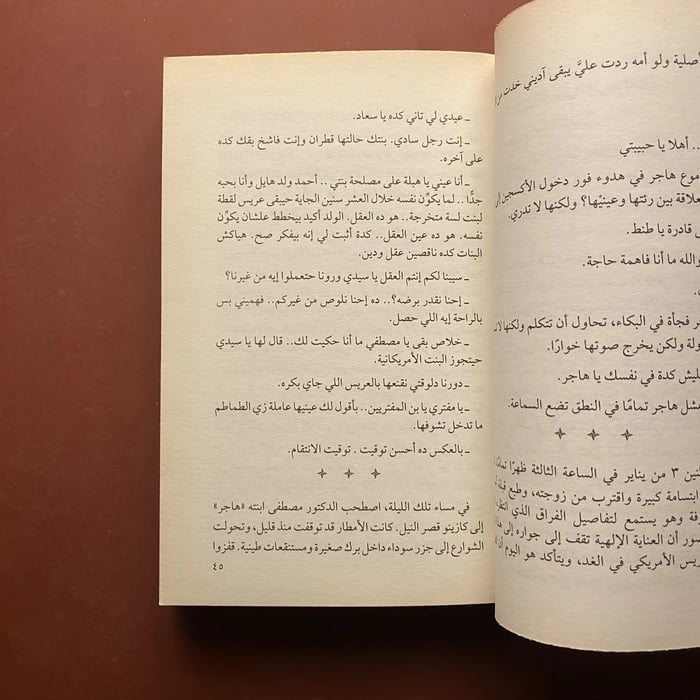 أصلية ولو أمه ردت عليَّ يبقى آديني خدت من
.. أهلا يا حبيبتي
موع هاجر في هدوء فور دخول الأكسجين
علاقة بين رئتها وعينيْها؟ ولكنها لا تدري.
قادرة يا طنط.
والله ما أنا فاهمة حاجة.
ر فجأة في البكاء، تحاول أن تتكلم ولكنها
ولة ولكن يخرج صوتها خوارًا.
ليش كدة في نفسك يا هاجر.
فشل هاجر تمامًا في النطق تضع السماعة.
ثنين ٣ من يناير في الساعة الثالثة ظهرًا
ابتسامة كبيرة واقترب من زوجته، وطبع قبلة
فة وهو يستمع لتفاصيل الفراق الذي
سور أن العناية الإلهية تقف إلى جواره إلى
ريس الأمريكي في الغد، ويتأكد هو اليوم أن
ـ عيدي لي تاني كده يا سعاد.
ـ إنت رجل سادي. بنتك حالتها قطران وإنت فاشخ بقك كده
على آخره.
ـ أنا عيني يا هبلة على مصلحة بنتي .. أحمد ولد هايل وأنا بحبه
جدًّا .. لما يكوِّن نفسه خلال العشر سنين الجاية حيبقى عريس لقطة
لبنت لسة متخرجة.. هو ده العقل. الولد أكيد بيخطط علشان يكوِّن
نفسه. هو ده عين العقل.. كدة أثبت لي إنه بيفكر صح. هياكش
البنات كده ناقصين عقل ودين.
ـ سيبنا لكم إنتم العقل يا سيدي ورونا حتعملوا إيه من غيرنا؟
ـ إحنا نقدر برضه؟.. ده إحنا نلوص من غيركم.. فهميني بس
بالراحة إيه اللي حصل.
ـ خلاص بقى يا مصطفي ما أنا حكيت لك.. قال لها يا سيدي
حيتجوز البنت الأمريكانية.
ـ دورنا دلوقتي نقنعها بالعريس اللي جاي بكره.
ـ يا مفتري يا بن المفتريين.. بأقول لك عينيها عاملة زي الطماطم
ما تدخل تشوفها.
ـ بالعكس ده أحسن توقيت . توقيت الانتقام.
في مساء تلك الليلة، اصطحب الدكتور مصطفى ابنته «هاجر»
إلى كازينو قصر النيل. كانت الأمطار قد توقفت منذ قليل، وتحولت
الشوارع إلى جزر سوداء داخل برك صغيرة ومستنقعات طينية. قفزوا
٤٥